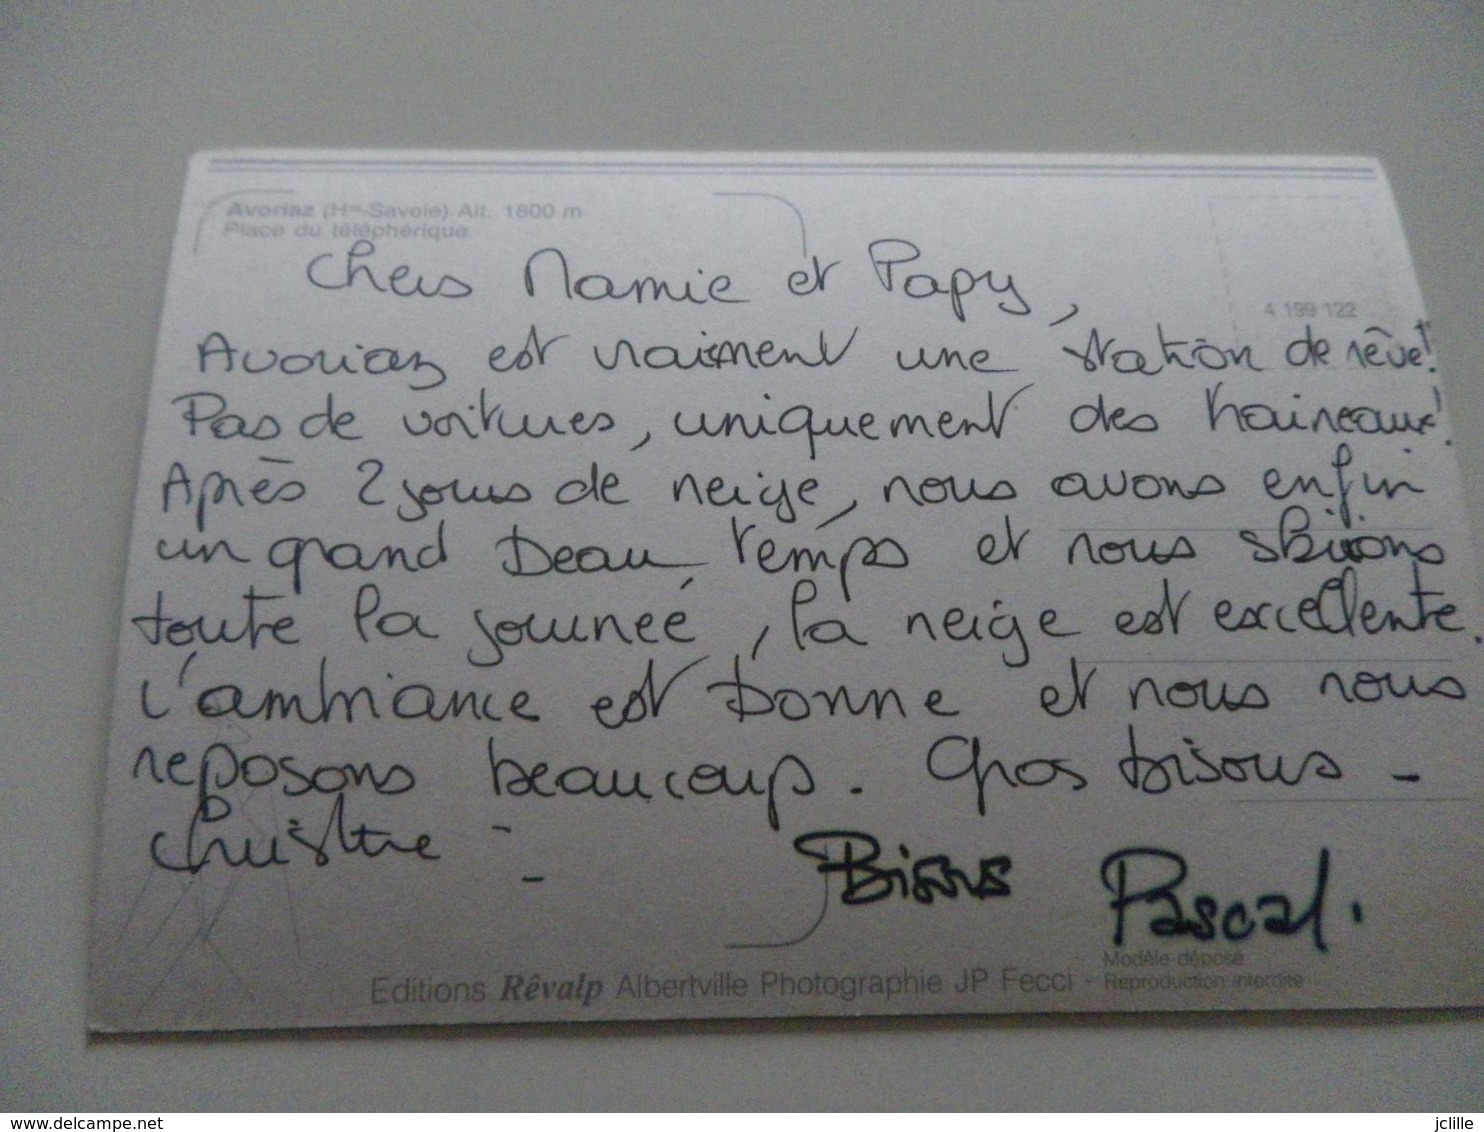 Avoriaz (Hte-Savoie) Alt. 1800 m
Place du téléphérique
4 199 122
Chers Mamie et Papy,
Avoriaz est vraiment une station de rêve!
Pas de voitures, uniquement des traineaux!
Après 2 jours de neige, nous avons enfin
un grand beau temps et nous skirons
toute la journeé, la neige est excellente.
L'ambiance est bonne et nous nous
reposons beaucoup. Gros bisous -
Bisous Pascal.
Editions Rêvalp Albertville Photographie JP Fecci - Modèle déposé
Reproduction interdite
www.delcampe.net
jclille